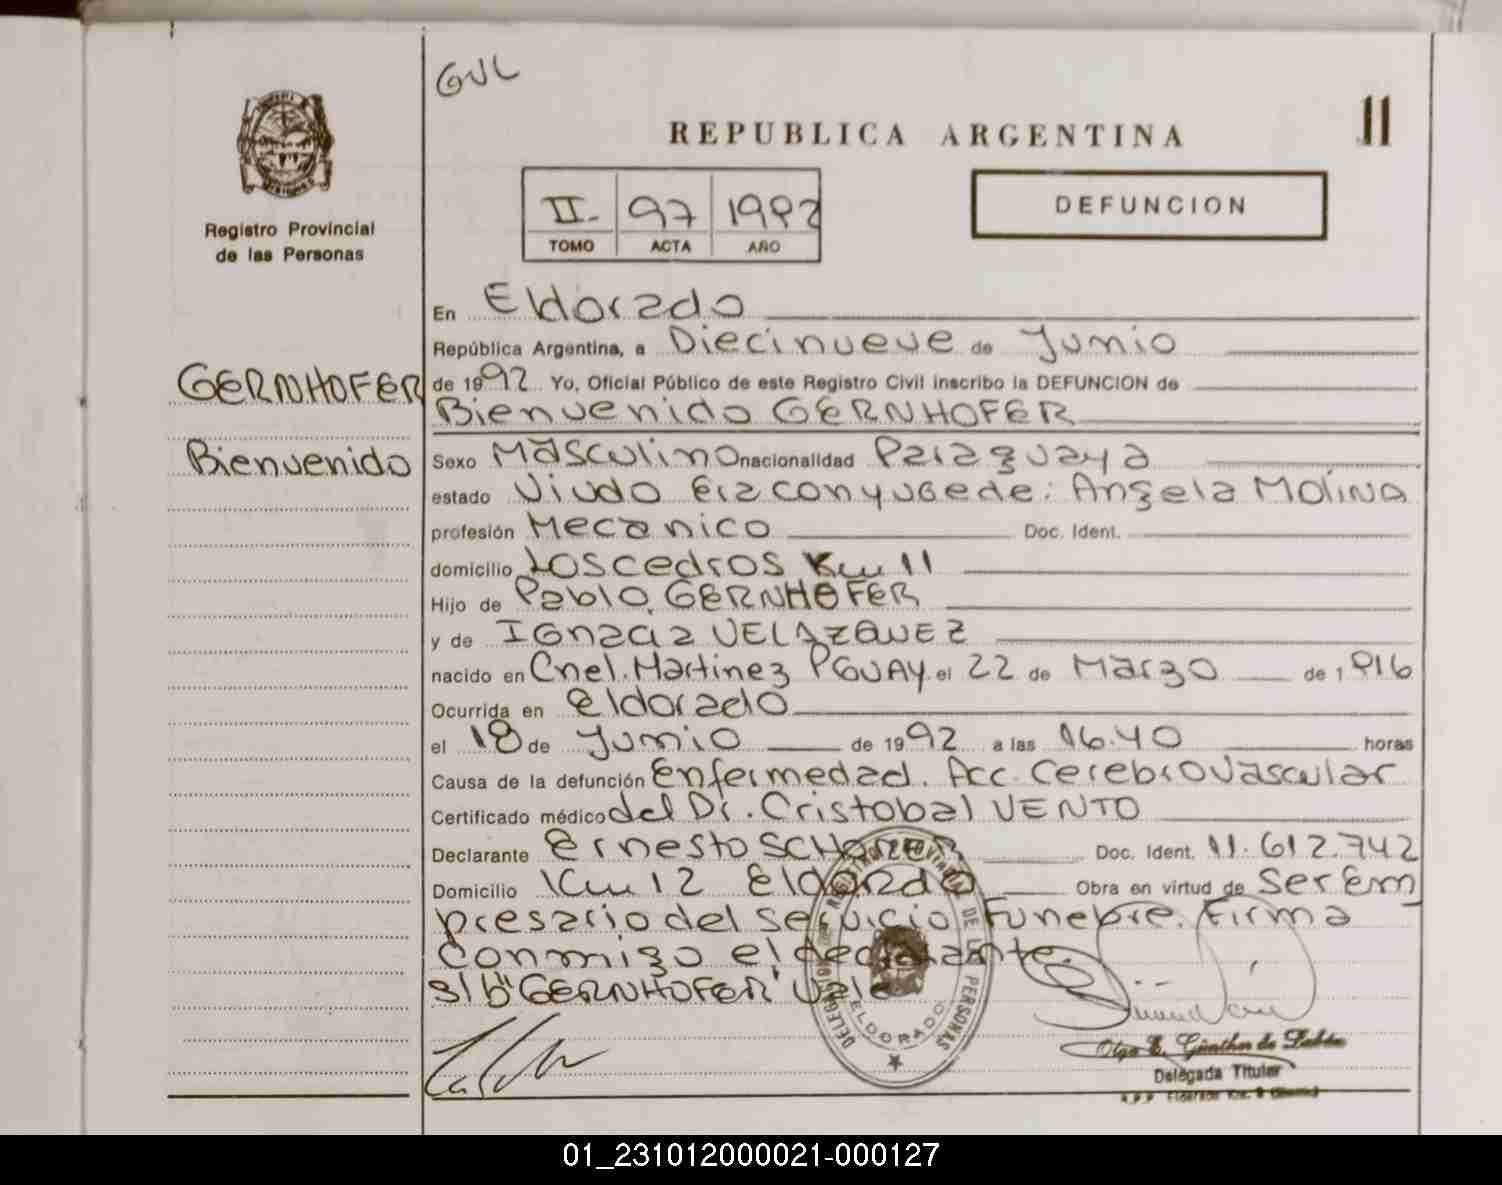 GVL
REPUBLICA ARGENTINA
11
Registro Provincial
de las Personas
II- 97 1992
TOMO ACTA AÑO
DEFUNCION
GERNHOFER
Bienvenido
En Eldorado
República Argentina, a Diecinueve de Junio
de 1992 Yo, Oficial Público de este Registro Civil inscribo la DEFUNCION de
Bienvenido GERNHOFER
Sexo Masculino nacionalidad Paraguaya
estado Viudo era conyuge de: Angela MOLINA
profesión Mecanico Doc. Ident.
domicilio Los cedros Km 11
Hijo de Pablo GERNHOFER
y de IGnacia VELAZQUEZ
nacido en Cnel. Martinez PGUAY el 22 de Marzo de 1916
Ocurrida en eldorado
el 18 de Junio de 1992 a las 16.40 horas
Causa de la defunción Enfermedad. Acc. Cerebrovascular
Certificado médico del Dr. Cristobal VENTO
Declarante Ernesto Doc. Ident. 11.612.742
Domicilio Km 12 Eldorado Obra en virtud de ser Em
presario del servicio Funebre. Firma
conmigo el declarante.
s/b "GERNHOFER" Vale
DE PERSONAS
ELDORADO
Olga E. Günther de
Delegada Titular
01_231012000021-000127